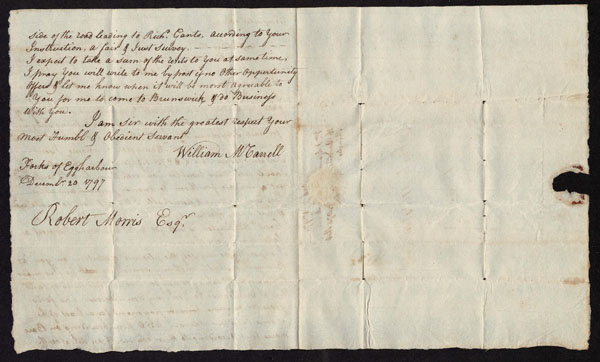 side of the road leading to Rich.d Cants, according to Your
Instruction, a fair & Just Survey.
I expect to take a sum of the to You at same time,
I pray You will write to me by post if no Other Oppertunity
Offers & let me know when it will be most agreable to
You for me to come to Brunswick & do Business
With You.
I am Sir with the greatest respect Your
most Humbl & Obedient Servant
William McCarrell
Forks of Eggharbour
Decembr. 20 1797
Robert Morris Esqr.